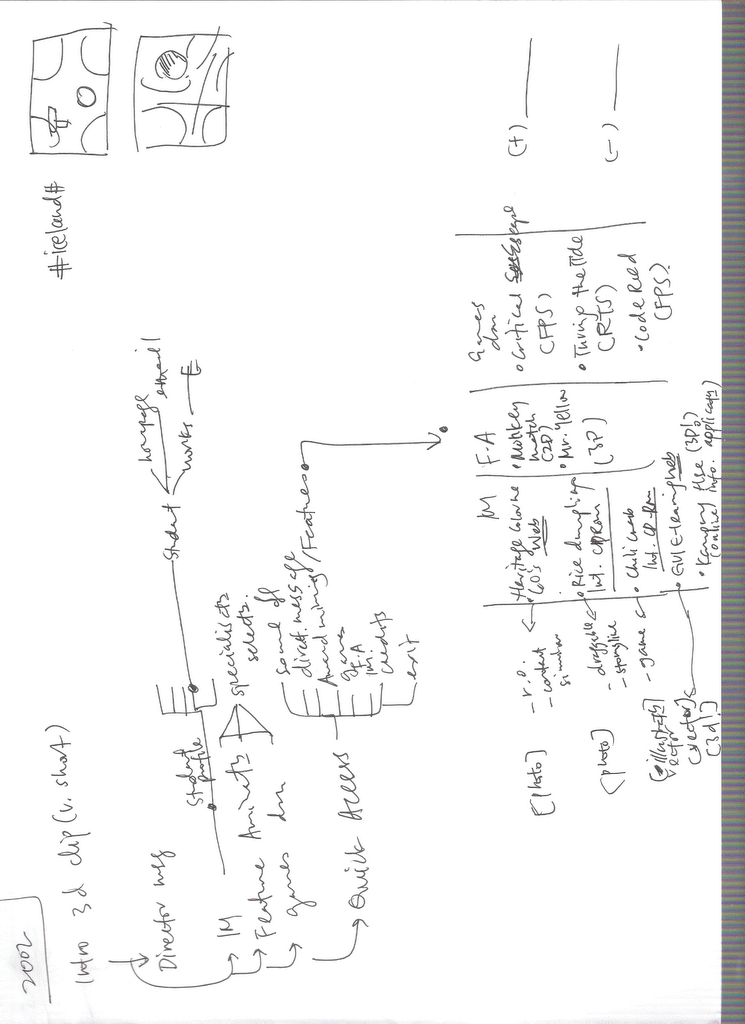 2002
Intro 3d clip (v. short)
Director msg
IM
Feature Animate
games dm
Quick Access
Student
profile
specialists
selects.
student
homepage
email
works
#iceland#
some of
direct. message
Award winning / Features
games
F.A
IM.
credits
exit
IM
• Heritage Game
60's Web
• Rice dumpling
Int. CDRom
• Chili crab
Int. CD-Rom
• GUI E-learning web
• Kampong Hse (3D!)
(online info. applicats)
F.A
• Monkey
match
(2D)
• Mr. Yellow
(3D)
games
dm
• Critical Escape
(FPS)
• Turing the Tide
(RTS)
• Code Red
(FPS).
(+)
(-)
- r.o.
- content
similar
- draggable
- storyline
- game
[photo]
[photo]
vector
[vector]
[3d!]